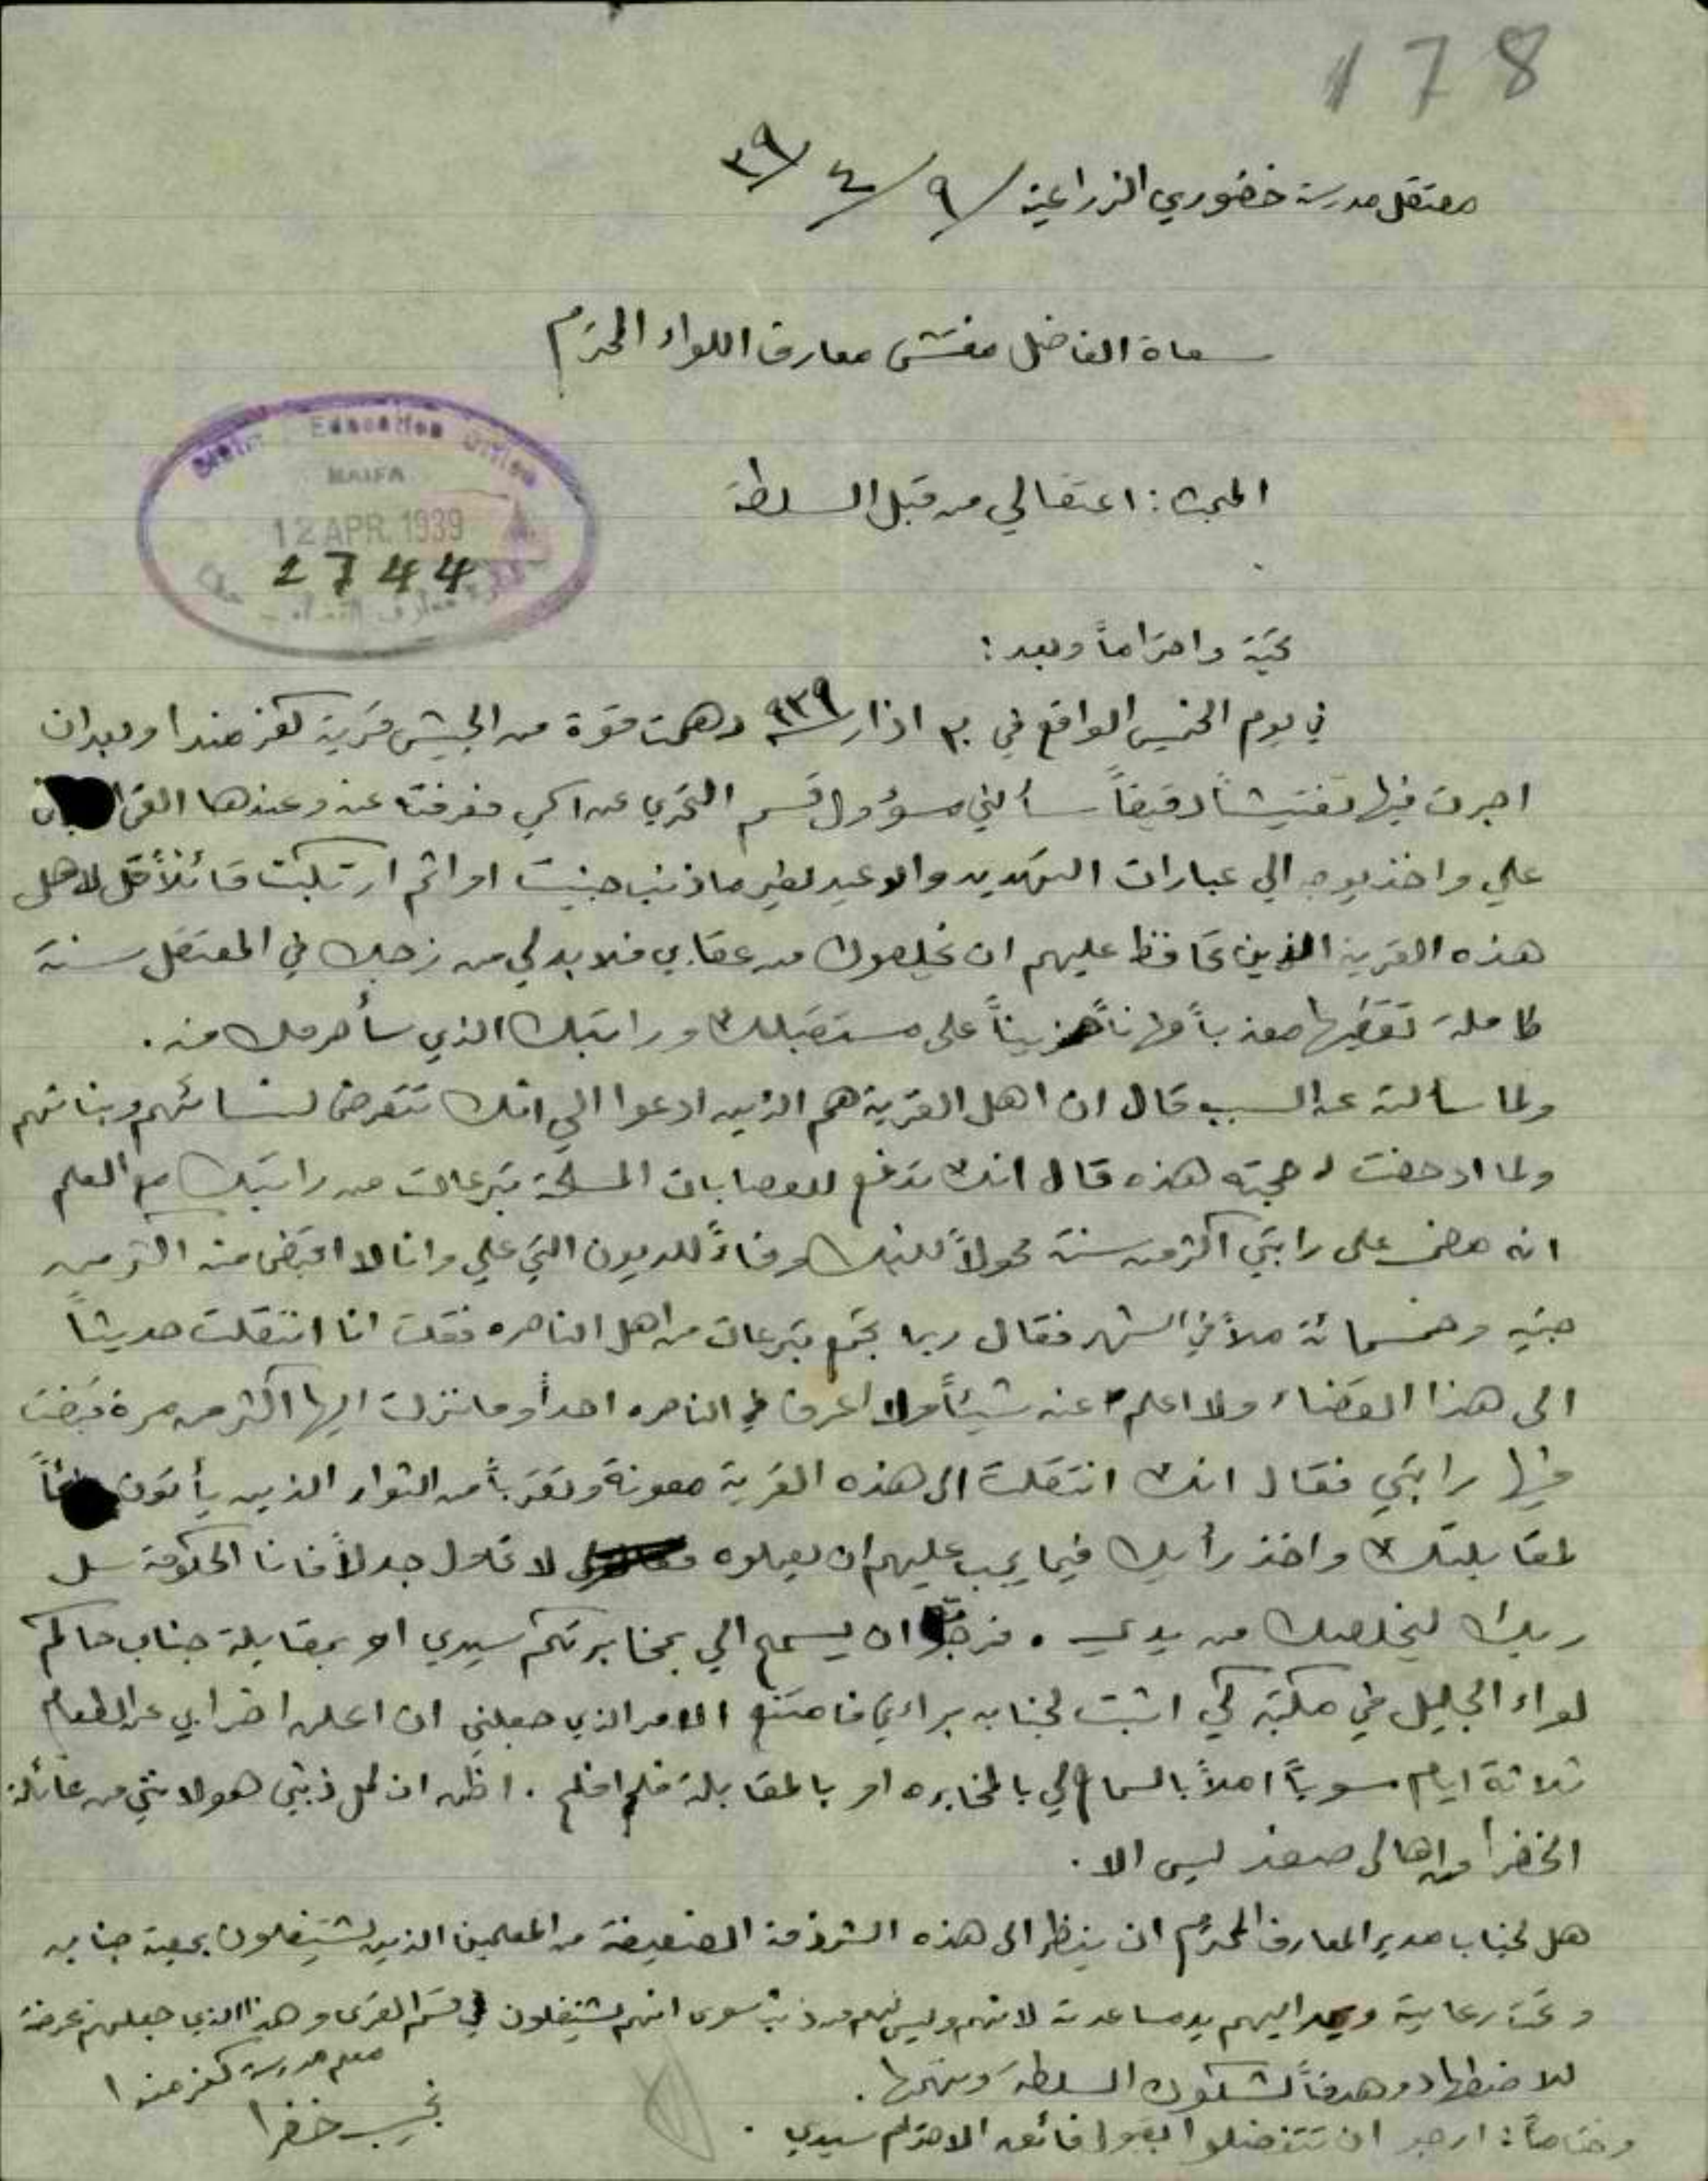 178
معتقل مدرسة خضوري الزراعية / ٩ / ٤ / ٣٩
سعادة الفاضل مفتش معارف اللواء المحترم
District Education Office
HAIFA
12 APR. 1939
2744
المبحث : اعتقالي من قبل السلطة
تحية واحتراماً وبعد :
في يوم الخميس الواقع في ٣٠ اذار ٩٣٩ دهمت قوة من الجيش قرية كفرمندا وبعد ان
اجرت فيها تفتيشاً دقيقاً سألني مسؤول قسم التحري عن اسمي فعرفته عنه وعندها القى
علي واخذ يوجه الي عبارات التهديد والوعيد لغير ما ذنب جنيت او اثم ارتكبت قائلاً قل لاهل
هذه القرية الذين تحافظ عليهم ان يخلصوك من عقابي فلا بد لي من زجك في المعتقل سنة
كاملة تقضيها معذباً مهاناً حزيناً على مستقبلك وراتبك الذي سأحرمك منه .
ولما سألته عن السبب قال ان اهل القرية هم الذين ادعوا الي انك تتعرض لنسائهم وبناتهم
ولما ادحضت حجته هذه قال انك تدفع للعصابات المسلحة تبرعات من راتبك مع العلم
انه مضى على راتبي اكثر من سنة محولاً للبنك وفاءً للديون التي علي وانا لا اقبض منه اكثر من
جنيه وخمسمائة ملاً في الشهر فقال ربما تجمع تبرعات من اهل الناصره فقلت انا انتقلت حديثاً
الى هذا القضاء ولا اعلم عنه شيئاً ولا اعرف في الناصره احداً وما نزلت اليها اكثر من مرة قبضت
فيها راتبي فقال انك انتقلت الى هذه القرية معونة وتقرباً من الثوار الذين يأتون
لمقابلتك واخذ رأيك فيما يجب عليهم ان يعملوه لا تحاول جدلاً فانا الحكومة سل
ربك ليخلصك من يدي . فرجوته ان يسمح الي بمخابرتكم سيدي او بمقابلة جناب حاكم
لواء الجليل في مكتبه كي اثبت لجنابه براءتي فامتنع الامر الذي جعلني ان اعلن اضرابي عن الطعام
ثلاثة ايام سوياً املاً بالسماح لي بالمخابره او بالمقابلة فلم افلح . اظن ان كل ذنبي هو لانني من عائلة
الخضرا من اهالي صفد ليس الا .
هل لجناب مدير المعارف المحترم ان ينظر الى هذه الشرذمة الضعيفة من المعلمين الذين يشتغلون بمعية جنابه
وتحت رعايته ويمد اليهم يد مساعدته لانهم وليس لهم من ذنب سوى انهم يشتغلون في قسم القرى وهذا الذي جعلهم عرضة
للاضطهاد وهدفاً لشكوك السلطة وتهمها .
وختاماً : ارجو ان تتفضلوا بقبول فائق الاحترام سيدي .
معلم مدرسة كفرمندا
نجيب خضرا